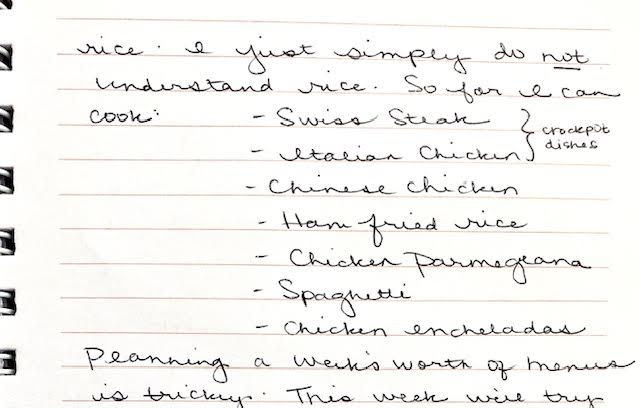 rice. I just simply do not
understand rice. So far I can
cook: - Swiss Steak
- Italian Chicken } crockpot dishes
- Chinese chicken
- Ham fried rice
- Chicken parmegeana
- Spaghetti
- Chicken encheladas
Planning a week's worth of menus
is tricky. This week we'll try